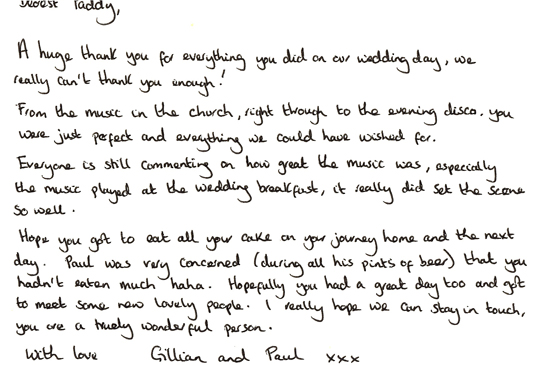 Dearest Paddy,
A huge thank you for everything you did on our wedding day, we
really can't thank you enough!
From the music in the church, right through to the evening disco. you
were just perfect and everything we could have wished for.
Everyone is still commenting on how great the music was, especially
the music played at the wedding breakfast, it really did set the scene
so well.
Hope you got to eat all your cake on your journey home and the next
day. Paul was very concerned (during all his pints of beer) that you
hadn't eaten much haha. Hopefully you had a great day too and got
to meet some new lovely people. I really hope we can stay in touch,
you are a truely wonderful person.
With love Gillian and Paul xxx